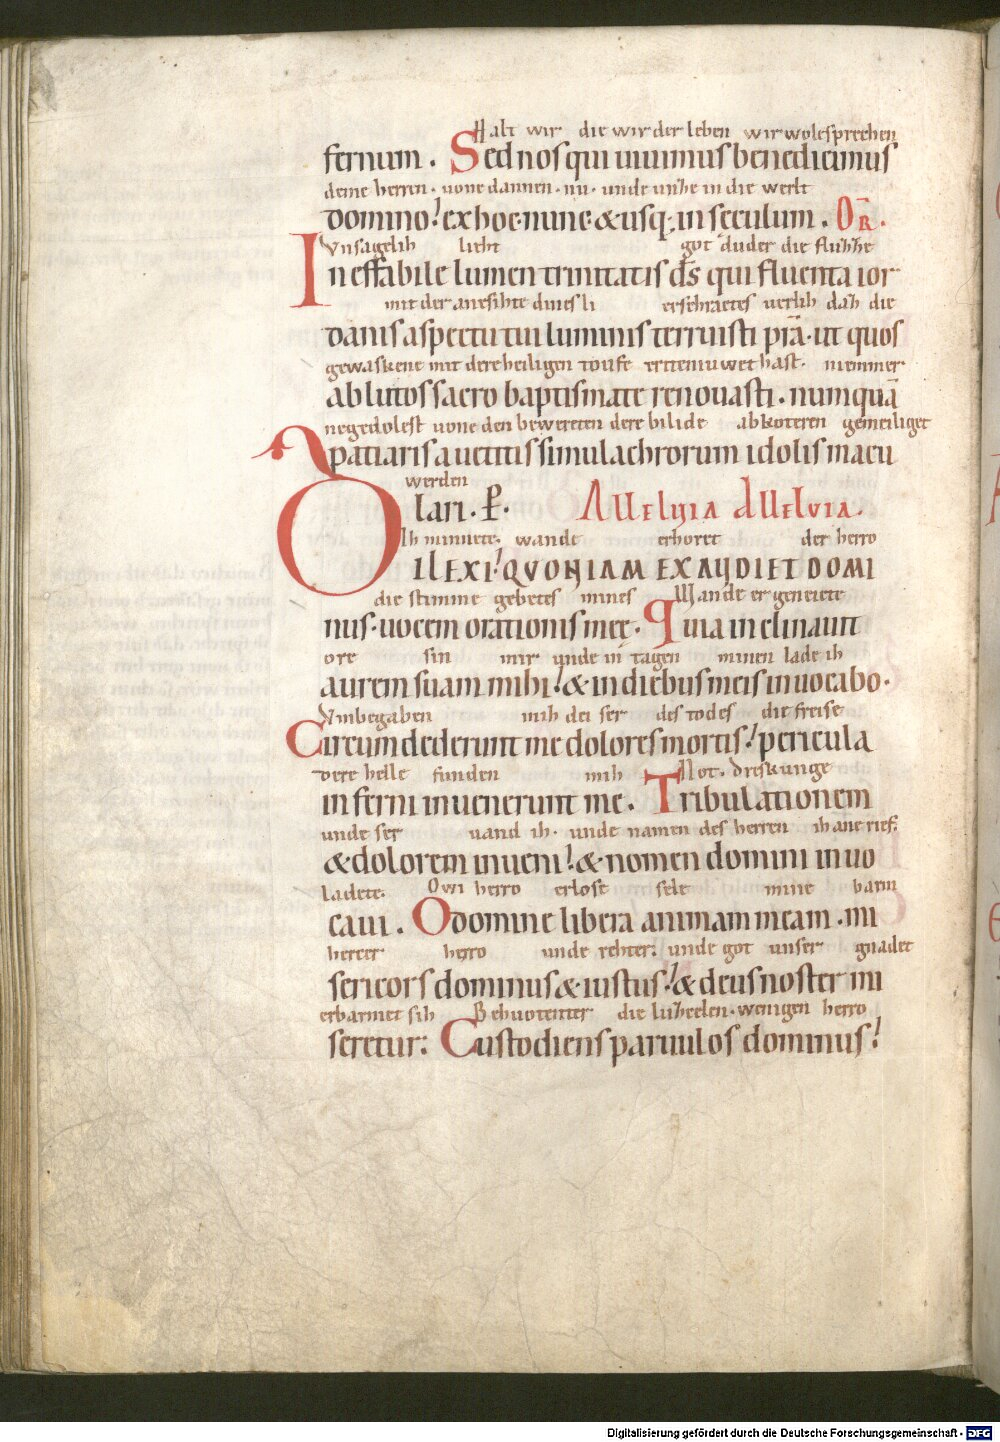 Halt wir die wir der leben wir wolesprechen
fernum. Sed nos qui uiuimus benedicimus
deme herren. uone dannen. nu. unde unhe in die werlt
domino! ex hoc nunc & usq; in seculum. OR̄.
Vnsagelih lieht got du der die fluhhe
Ineffabile lumen trinitatis d̄s qui fluenta ior
mit der anesihte dines li erschractes uerlih dah die
danis aspectu tui luminis terruisti prā. ut quos
gewaskene mit dere heiligen toufe iteniuwet hast. niemmer
ablutos sacro baptismate renouasti. numquā
negedolest uone den bewereten dere bilide abkoteren gemeiliget
patiaris a uetitis simulachrorum idolis macu
werden
lari. P. Alleluia Alleluia.
Ih minnete. wande erhoret der herro
DILEXI! QVONIAM EXAUDIET DOMI
die stimme gebetes mines Wande er geneicte
nus. uocem orationis meę. Quia inclinauit
ore sin mir unde in tagen minen lade ih
aurem suam mihi! & in diebus meis inuocabo.
Vmbegaben mih dei ser des todes die freise
Circumdederunt me dolores mortis! pericula
dere helle funden mih Not. dreskunge
inferni inuenerunt me. Tribulationem
unde ser uand ih. unde namen des herren ih ane rief.
& dolorem inueni! & nomen domini inuo
ladete. Owi herro erlose sele mine barm
caui. O domine libera animam meam. mi
hercer herro unde rehter. unde got unser gnadet
sericors dominus & iustus! & deus noster mi
erbarmet sih Behuotenter die luhcelen. wenigen herro
seretur: Custodiens paruulos dominus!
Digitalisierung gefördert durch die Deutsche Forschungsgemeinschaft - DFG